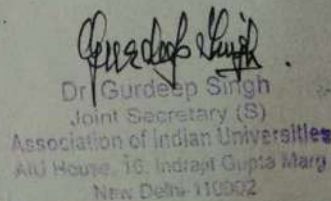 Gurdeep Singh
Dr Gurdeep Singh
Joint Secretary (S)
Association of Indian Universities
AIU House, 16, Indrajit Gupta Marg
New Delhi-110002